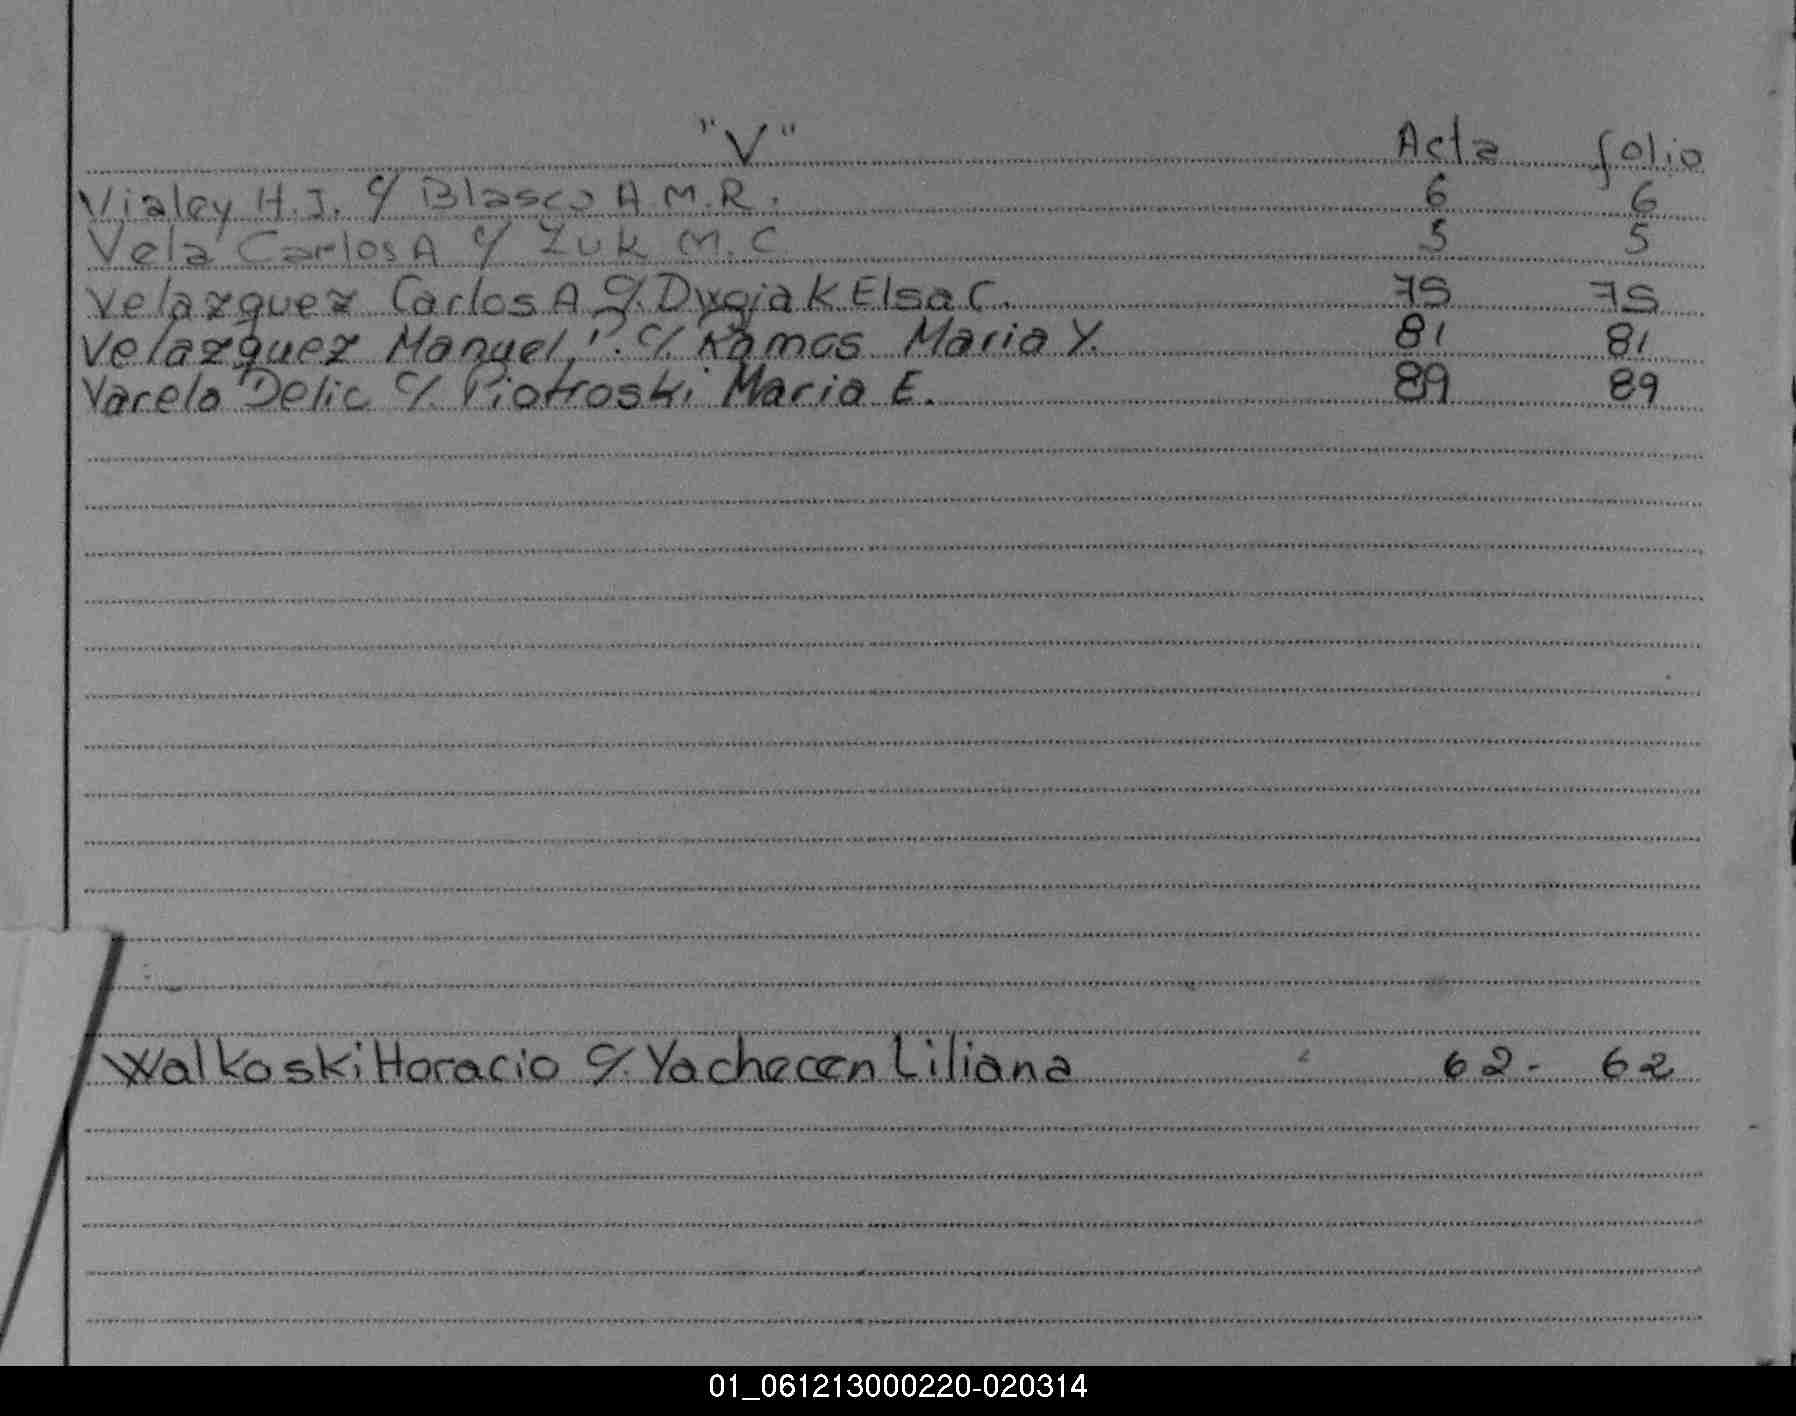 "V" Acta folio
Vialey H.J. c/ Blasco A.M.R. 6 6
Vela Carlos A c/ Zuk M.C 5 5
Velazquez Carlos A c/. Dygiak Elsa C. 75 75
Velazquez Manuel c/. Ramos Maria Y. 81 81
Varela Delic c/. Piotroski Maria E. 89 89
Walkoski Horacio c/. Yachecen Liliana 62- 62
01_061213000220-020314